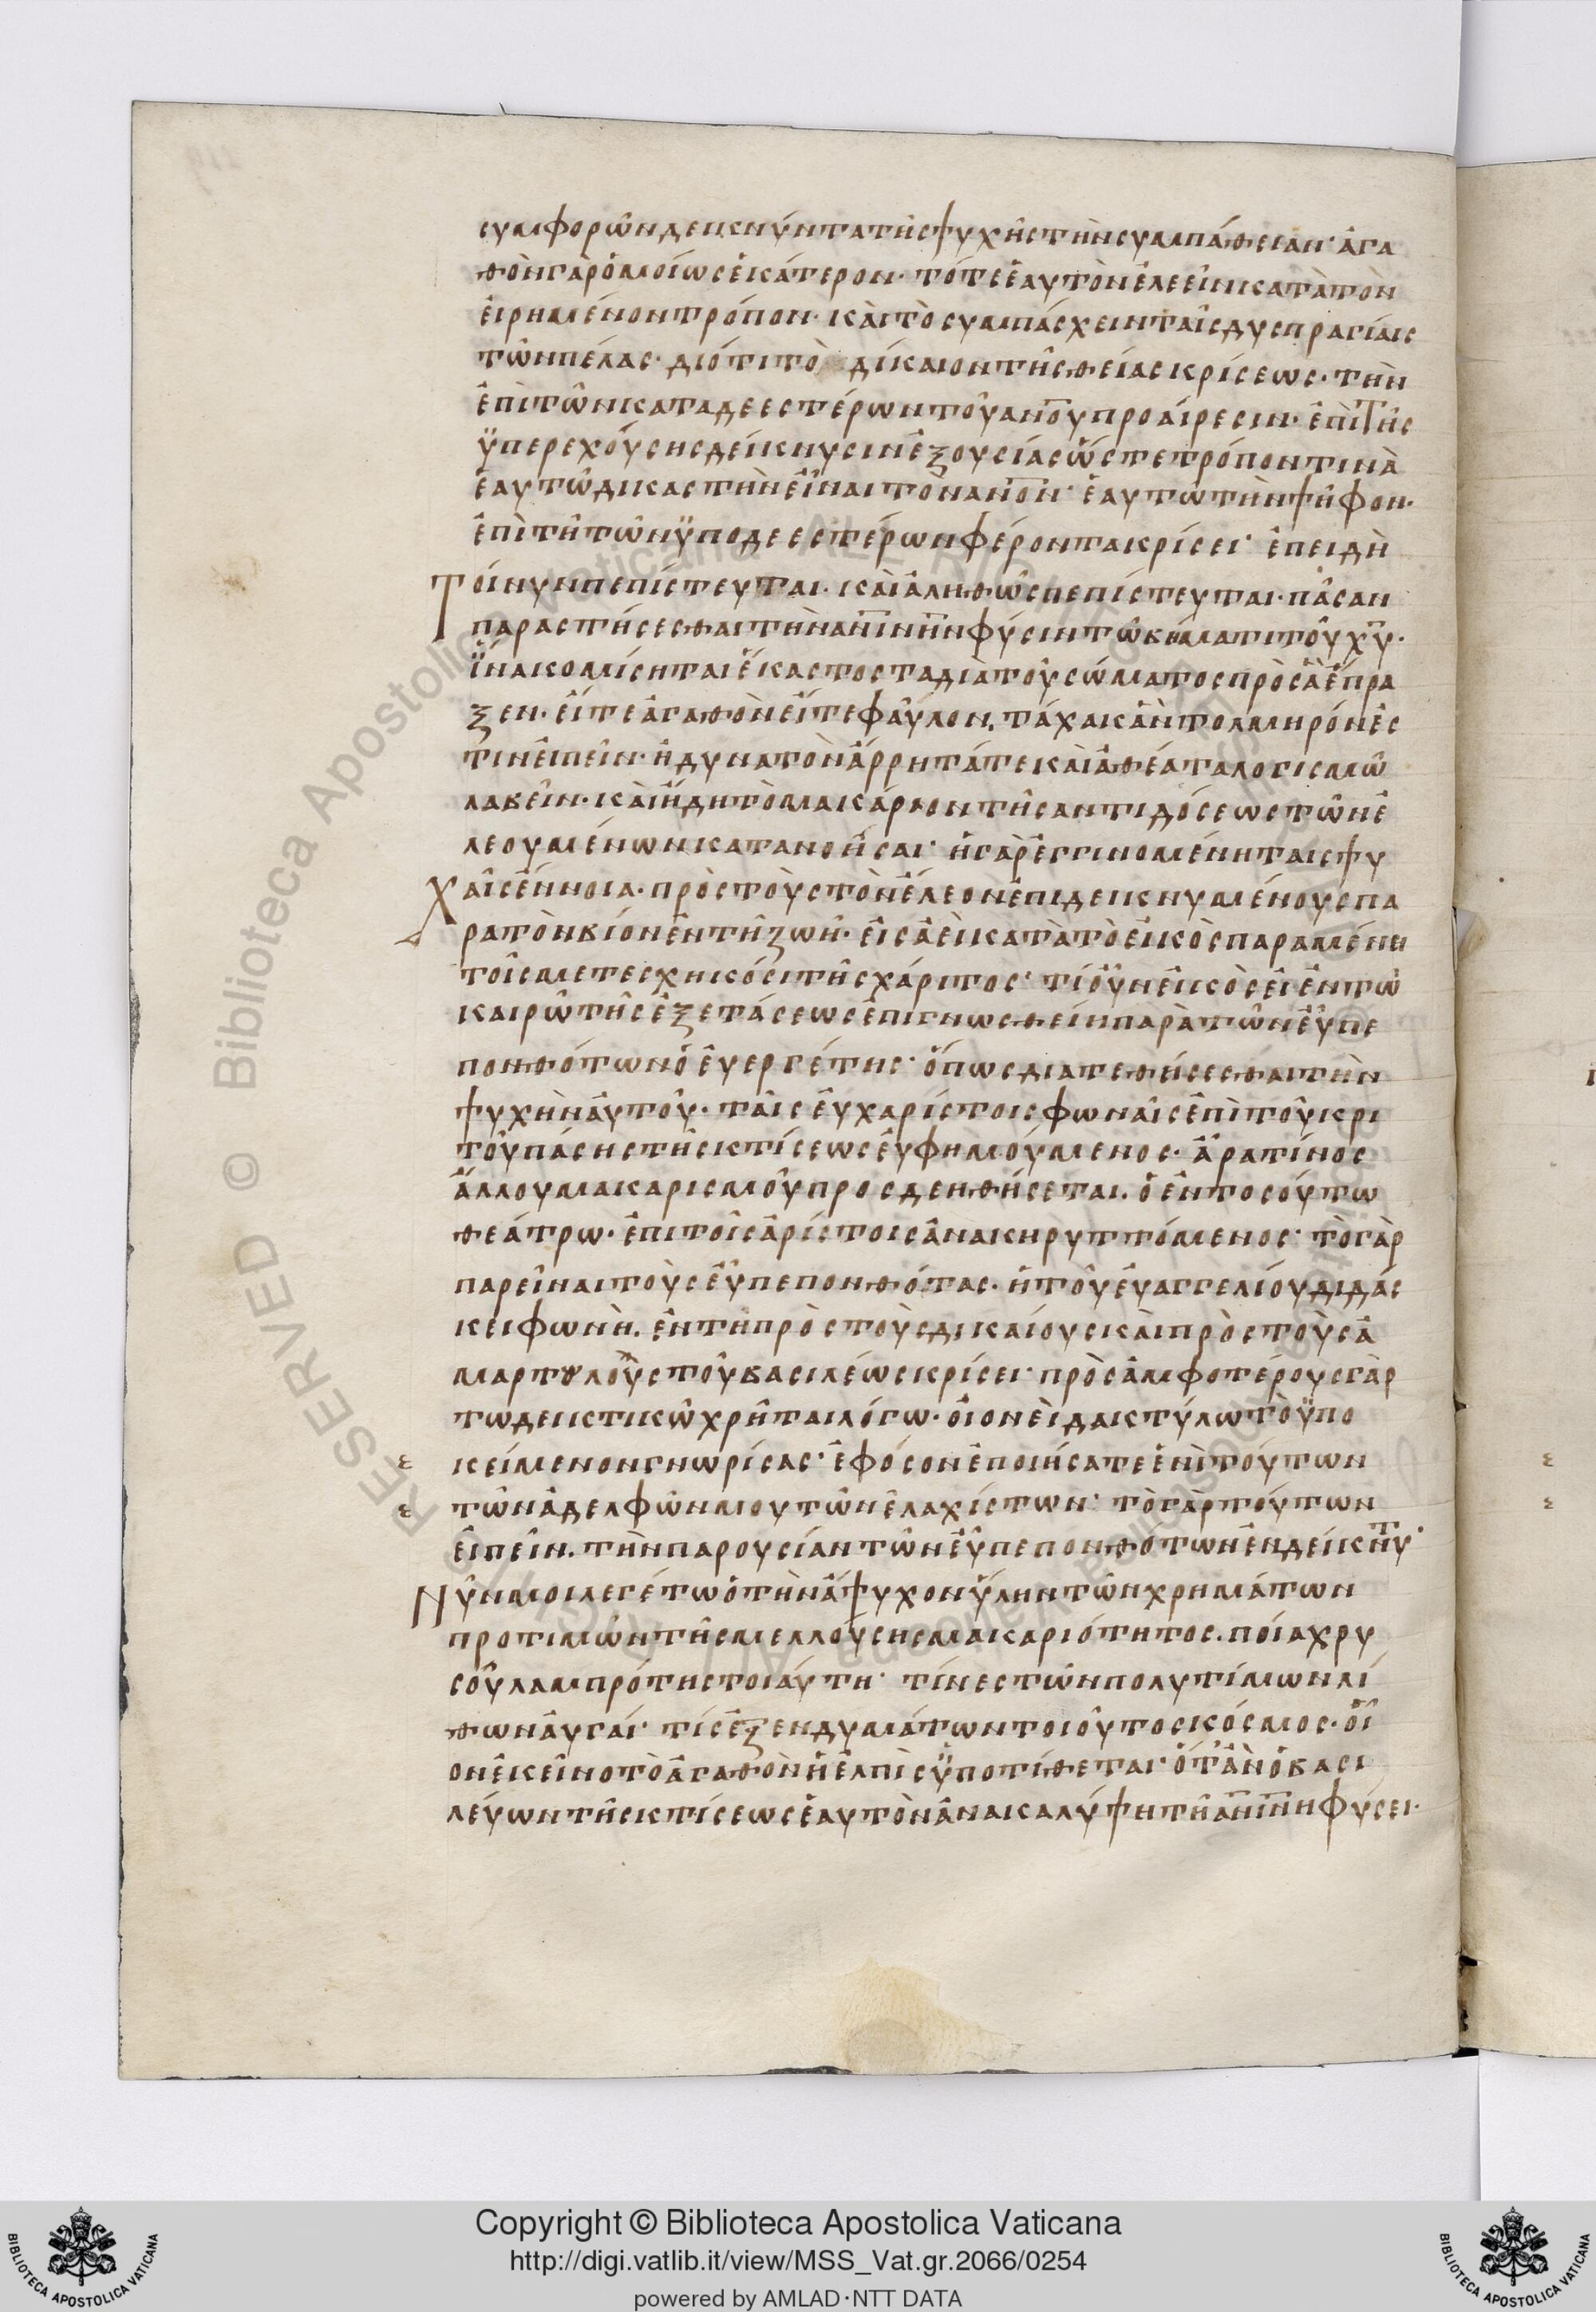 συμφορῶν δεικνύντα τῆς ψυχῆς τὴν συμπάθειαν· ἀγα
θὸν γὰρ ὁμοίως ἑκάτερον· τό τε ἑαυτὸν ἐλεεῖν κατὰ τὸν
εἰρημένον τρόπον· καὶ τὸ συμπάσχειν ταῖς δυσπραγίαις
τῶν πέλας· διότι τὸ δίκαιον τῆς θείας κρίσεως· τὴν
ἐπὶ τῶν καταδεεστέρων τοῦ ανου προαίρεσιν· ἐπὶ τῆς
ὑπερεχούσης δείκνυσιν ἐξουσίας ὥστε τρόπον τινὰ
ἑαυτῶ δικαστὴν εἶναι τὸν ανον· ἑαυτῶ τὴν ψῆφον·
ἐπὶ τῆ τῶν ὑποδεεστέρων φέροντα κρίσει· ἐπειδὴ
Τοίνυν πεπίστευται· καὶ ἀληθῶς πεπίστευται· πᾶσαν
παραστήσεσθαι τὴν ανινην φύσιν τῶ βήματι τοῦ χυ·
ἵνα κομίσηται ἕκαστος τα διὰ τοῦ σώματος πρὸς ἃ ἔπρα
ξεν· εἴτε ἀγαθὸν εἴτε φαῦλον. τάχα κἂν τολμηρόν ἐσ
τιν εἰπεῖν· ἢ δυνατὸν ἄρρητά τε καὶ ἀθέατα λογισμῶ
λαβεῖν· καὶ ἤδη τὸ μακάριον τῆς αντιδόσεως τῶν ἐ
λεουμένων κατανοῆσαι· ἡ γὰρ ἐγγινομένη ταις ψυ
Χαῖς εὔνοια· πρὸς τοὺς τὸν ἔλεον ἐπιδεικνυμένους πα
ρα τὸν βίον ἐν τῆ ζωῆ· εἰς ἀεὶ κατὰ τὸ εἰκὸς παραμένει
τοῖς μετεσχηκόσι τῆς χάριτος· τί οὖν εἰκὸς εἰ ἐν τῶ
καιρῶ τῆς ἐξετάσεως ἐπιγνωσθείη παρὰ τῶν εὖ πε
πονθότων ὁ ἐυεργέτης· ὅπως διατεθήσεσθαι τὴν
ψυχὴν ἀυτοῦ· ταῖς ἐυχαρίστοις φωναῖς ἐπὶ τοῦ κρι
τοῦ πάσης τῆς κτίσεως ἐυφημούμενος· ἆρα τίνος
ἄλλου μακαρισμοῦ προσδεηθήσεται. ὁ ἐν τοσούτω
θεάτρω· ἐπι τοῖς ἀρίστοις ἀνακηρυττόμενος· τὸ γὰρ
παρεῖναι τοὺς εὖ πεπονθότας· ἡ τοῦ ἐυαγγελίου διδάσ
κει φωνὴ. ἐν τῆ πρὸς τοὺς δικαίους καὶ πρὸς τοὺς ἁ
μαρτωλοὺς τοῦ βασιλέως κρίσει· πρὸς ἀμφοτέρους γὰρ
τω δεικτικῶ χρῆται λόγω· οἱονεὶ δακτύλω τὸ ὑπο
κείμενον γνωρίσας· ἐφόσον ἐποιήσατε ἑνὶ τούτων
τῶν ἀδελφῶν μου τῶν ἐλαχίστων· τὸ γὰρ τούτων
ἐιπεῖν. τὴν παρουσίαν τῶν εὖ πεπονθοτων ἐνδείκνυτ·
Νῦν μοι λεγέτω ὁ τὴν ἄψυχον ὕλην τῶν χρημάτων
προτιμῶν τῆς μελλούσης μακαριότητος. ποία χρυ
σοῦ λαμπρότης τοιαύτη· τίνες τῶν πολυτίμων λί
θων ἀυγαί· τίς ἐξ ενδυμάτων τοιοῦτος κόσμος· οἷ
ον ἐκεῖνο τὸ ἀγαθὸν ἡ ἐλπὶς ὑποτίθεται· ὅτ᾽ ἂν ὁ βασι
λεύων τῆς κτίσεως ἑαυτὸν ἀνακαλύψη τῆ ανινη φύσει·
Copyright © Biblioteca Apostolica Vaticana
http://digi.vatlib.it/view/MSS_Vat.gr.2066/0254
powered by AMLAD·NTT DATA